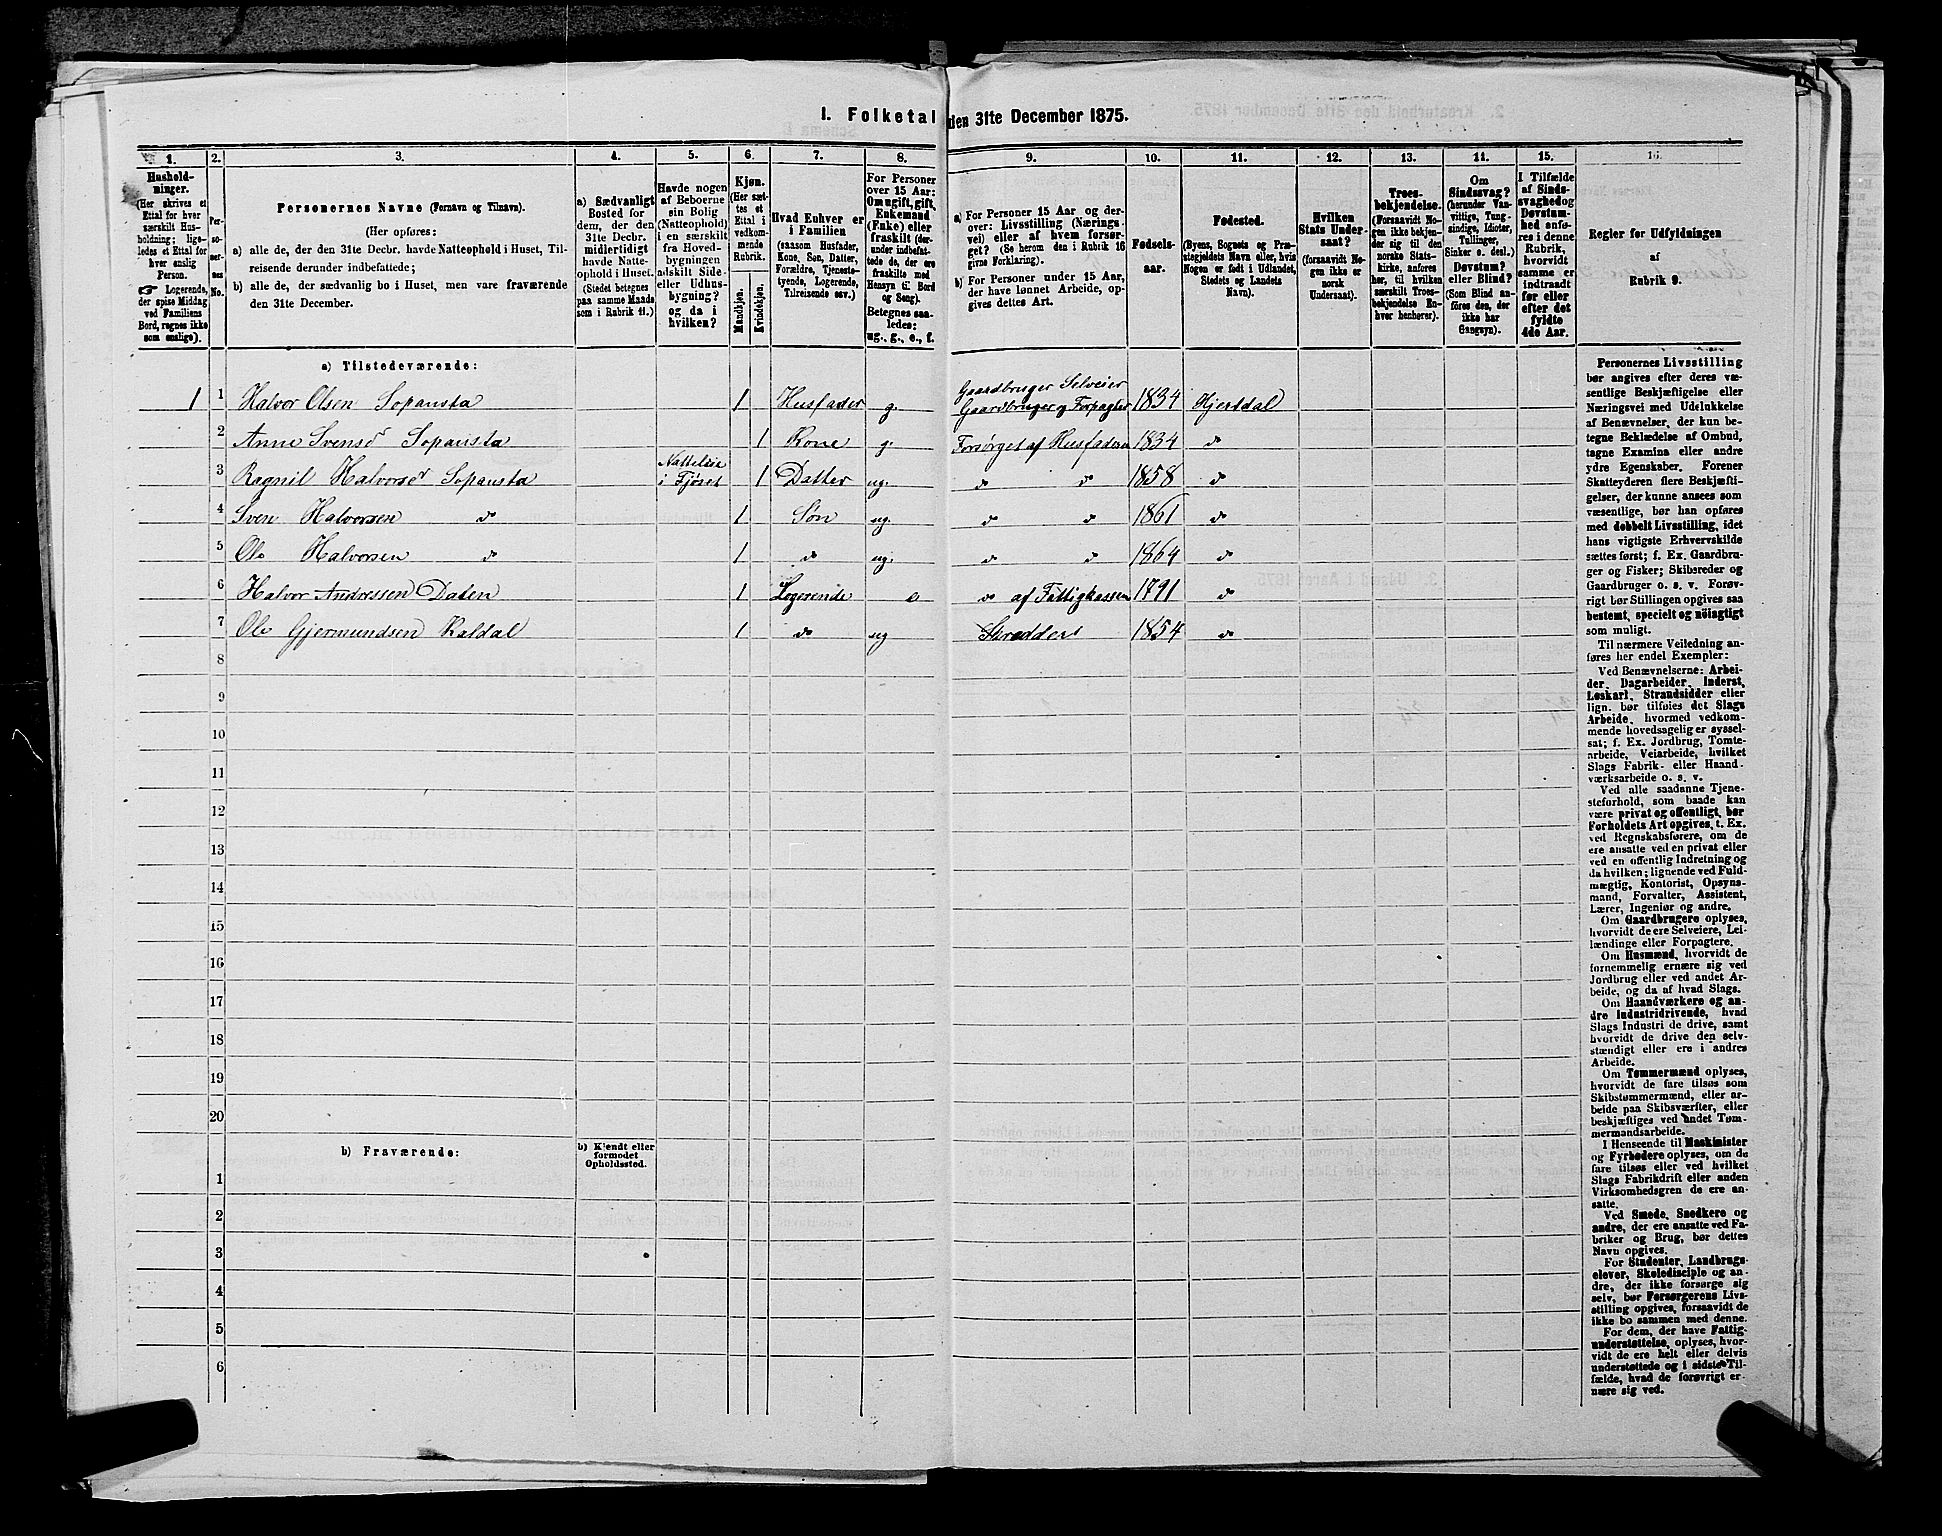 I. Folketal den 31te December 1875.
1. 2. 3. 4. 5. 6. 7. 8. 9. 10. 11. 12. 13. 14. 15. 16.
Husholdninger.
(Her skrives et
Ettal for hver
særskilt Hus-
holdning; lige-
ledes et Ettal for
hver enslig
Person.
☞ Logerende,
der spise Middag
ved Familiens
Bord, regnes ikke
som enslige).
Per-
so-
nernes
No.
Personernes Navne (Fornavn og Tilnavn).
(Her opføres:
a) alle de, der den 31te Decbr. havde Natteophold i Huset, Til-
reisende derunder indbefattede;
b) alle de, der sædvanlig bo i Huset, men vare fraværende
den 31te December.
a) Sædvanligt
Bosted for
dem, der den
31te Decbr.
midlertidigt
havde Natte-
ophold i Huset.
(Stedet betegnes
paa samme Maade
som i Rubrik 11.)
Havde nogen
af Beboerne
sin Bolig
(Natteophold)
i en særskilt
fra Hoved-
bygningen
adskilt Side-
eller Udhus-
bygning?
og da i
hvilken?
Kjøn.
(Her sæt-
tes et
Ettal i
vedkom-
mende
Rubrik.
Mandkjøn.
Kvindekjøn.
Hvad Enhver er
i Familien
(saasom Husfader,
Kone, Søn, Datter,
Forældre, Tjeneste-
tyende, Logerende,
Tilreisende osv.)
For Personer
over 15 Aar:
Om ugift, gift,
Enkemand
(Enke) eller
fraskilt (der-
under indbefat-
tede de, der ere
fraskilte med
Hensyn til Bord
og Seng).
Betegnes saa-
ledes:
ug., g., e., f.
a) For Personer 15 Aar og der-
over: Livsstilling (Nærings-
vei) eller af hvem forsør-
get? (Se herom den i Rubrik 16
givne Forklaring).
b) For Personer under 15 Aar,
der have lønnet Arbeide, op-
gives dettes Art.
Fødsels-
aar.
Fødested.
(Byens, Sognets og Præ-
stegjeldets Navn eller, hvis
Nogen er født i Udlandet,
Stedets og Landets
Navn).
Hvilken
Stats Under-
saat?
(forsaavidt No-
gen ikke er
norsk
Undersaat).
Troes-
bekjendelse.
(Forsaavidt No-
gen ikke bekjen-
der sig til den
norske Stats-
kirke, anføres
her, til hvilken
særskilt Troes-
bekjendelse En-
hver henhører).
Om
Sindssvag?
(herunder Van-
vittige, Tung-
sindige, Idioter,
Tullinger,
Sinker o. desl.)
Døvstum?
eller Blind?
(Som Blind an-
føres den, der
ikke har
Gangsyn).
I Tilfælde
af Sinds-
svaghed og
Døvstum-
hed anfø-
res i denne
Rubrik,
hvorvidt
samme er
indtraadt
før eller
efter det
fyldte
4de Aar.
Regler for Udfyldningen
af
Rubrik 9.
a) Tilstedeværende:
1 1 Halvor Olsen Sopansta 1 Husfader g. Gaardbruger Selveier Gaardbruger og Forpagter 1834 Hjertdal
2 Anne Svensd Sopansta 1 Kone g. Forsørget af Husfaderen 1834 do
3 Ragnil Halvorsd Sopansta Natteleie i Fjøset 1 Datter ug. do do 1858 do
4 Sven Halvorsen do 1 Søn ug. do do 1861 do
5 Ole Halvorsen do 1 do ug. do do 1864 do
6 Halvor Andressen Dalen 1 Logerende e do af Fattigkassen 1791 do
7 Ole Gjermundsen Kaldal 1 do ug Skredder 1854 do
8
9
10
11
12
13
14
15
16
17
18
19
20
b) Fraværende:
b) Kjendt eller
formodet
Opholdssted.
1
2
3
4
5
6
Personernes Livsstilling
bør angives efter deres væ-
sentlige Beskjæftigelse eller
Næringsvei med Udelukkelse
af Benævnelser, der kun be-
tegne Beklædelse af Ombud,
tagne Examina eller andre
ydre Egenskaber. Forener
Skatteyderen flere Beskjæfti-
gelser, der kunne ansees som
væsentlige, bør han opføres
med dobbelt Livsstilling, idet
hans vigtigste Erhvervskilde
sættes først; f. Ex. Gaardbru-
ger og Fisker; Skibsreder og
Gaardbruger o. s. v. Forøv-
rigt bør Stillingen opgives saa
bestemt, specielt og nöiagtigt
som muligt.
Til nærmere Veiledning an-
føres her endel Exempler:
Ved Benævnelserne: Arbei-
der, Dagarbeider, Inderst,
Løskarl, Strandsidder eller
lign. bør tilføies det Slags
Arbeide, hvormed vedkom-
mende hovedsagelig er syssel-
sat; f. Ex. Jordbrug, Tomte-
arbeide, Veiarbeide, hvilket
Slags Fabrik- eller Haand-
værksarbeide o. s. v.
Ved alle saadanne Tjene-
steforhold, som baade kan
være privat og offentligt, bør
Forholdets Art opgives, t. Ex.
ved Regnskabsførere, om de
ere ansatte ved en privat eller
ved en offentlig Indretning og
da hvilken; lignende ved Fuld-
mægtig, Kontorist, Opsyns-
mand, Forvalter, Assistent,
Lærer, Ingeniør og andre.
Om Gaardbrugere oplyses,
hvorvidt de ere Selveiere, Lei-
lændinge eller Forpagtere.
Om Husmænd, hvorvidt de
fornemmelig ernære sig ved
Jordbrug eller ved andet Ar-
beide, og da af hvad Slags.
Om Haandværkere og an-
dre Industridrivende, hvad
Slags Industri de drive, samt
hvorvidt de drive den selv-
stændigt eller ere i andres
Arbeide.
Om Tømmermænd oplyses,
hvorvidt de fare tilsøs som
Skibstømmermænd, eller ar-
beide paa Skibsværfter, eller
beskjæftiges ved andet Tøm-
mermandsarbeide.
I Henseende til Maskinister
og Fyrbødere oplyses, om de
fare tilsøs eller ved hvilket
Slags Fabrikdrift eller anden
Virksomhedsgren de ere an-
satte.
Ved Smede, Snedkere og
andre, der ere ansatte ved Fa-
briker og Brug, bør dettes
Navn opgives.
For Studenter, Landbrugs-
elever, Skoledisciple og an-
dre, der ikke forsørge sig
selv, bør Forsørgerens Livs-
stilling opgives, forsaavidt de
ikke bo sammen med denne.
For dem, der have Fattig-
understøttelse, oplyses, hvor-
vidt de ere helt eller delvis
understøttede og i sidste Til-
fælde, hvad de forøvrigt er-
nære sig ved.